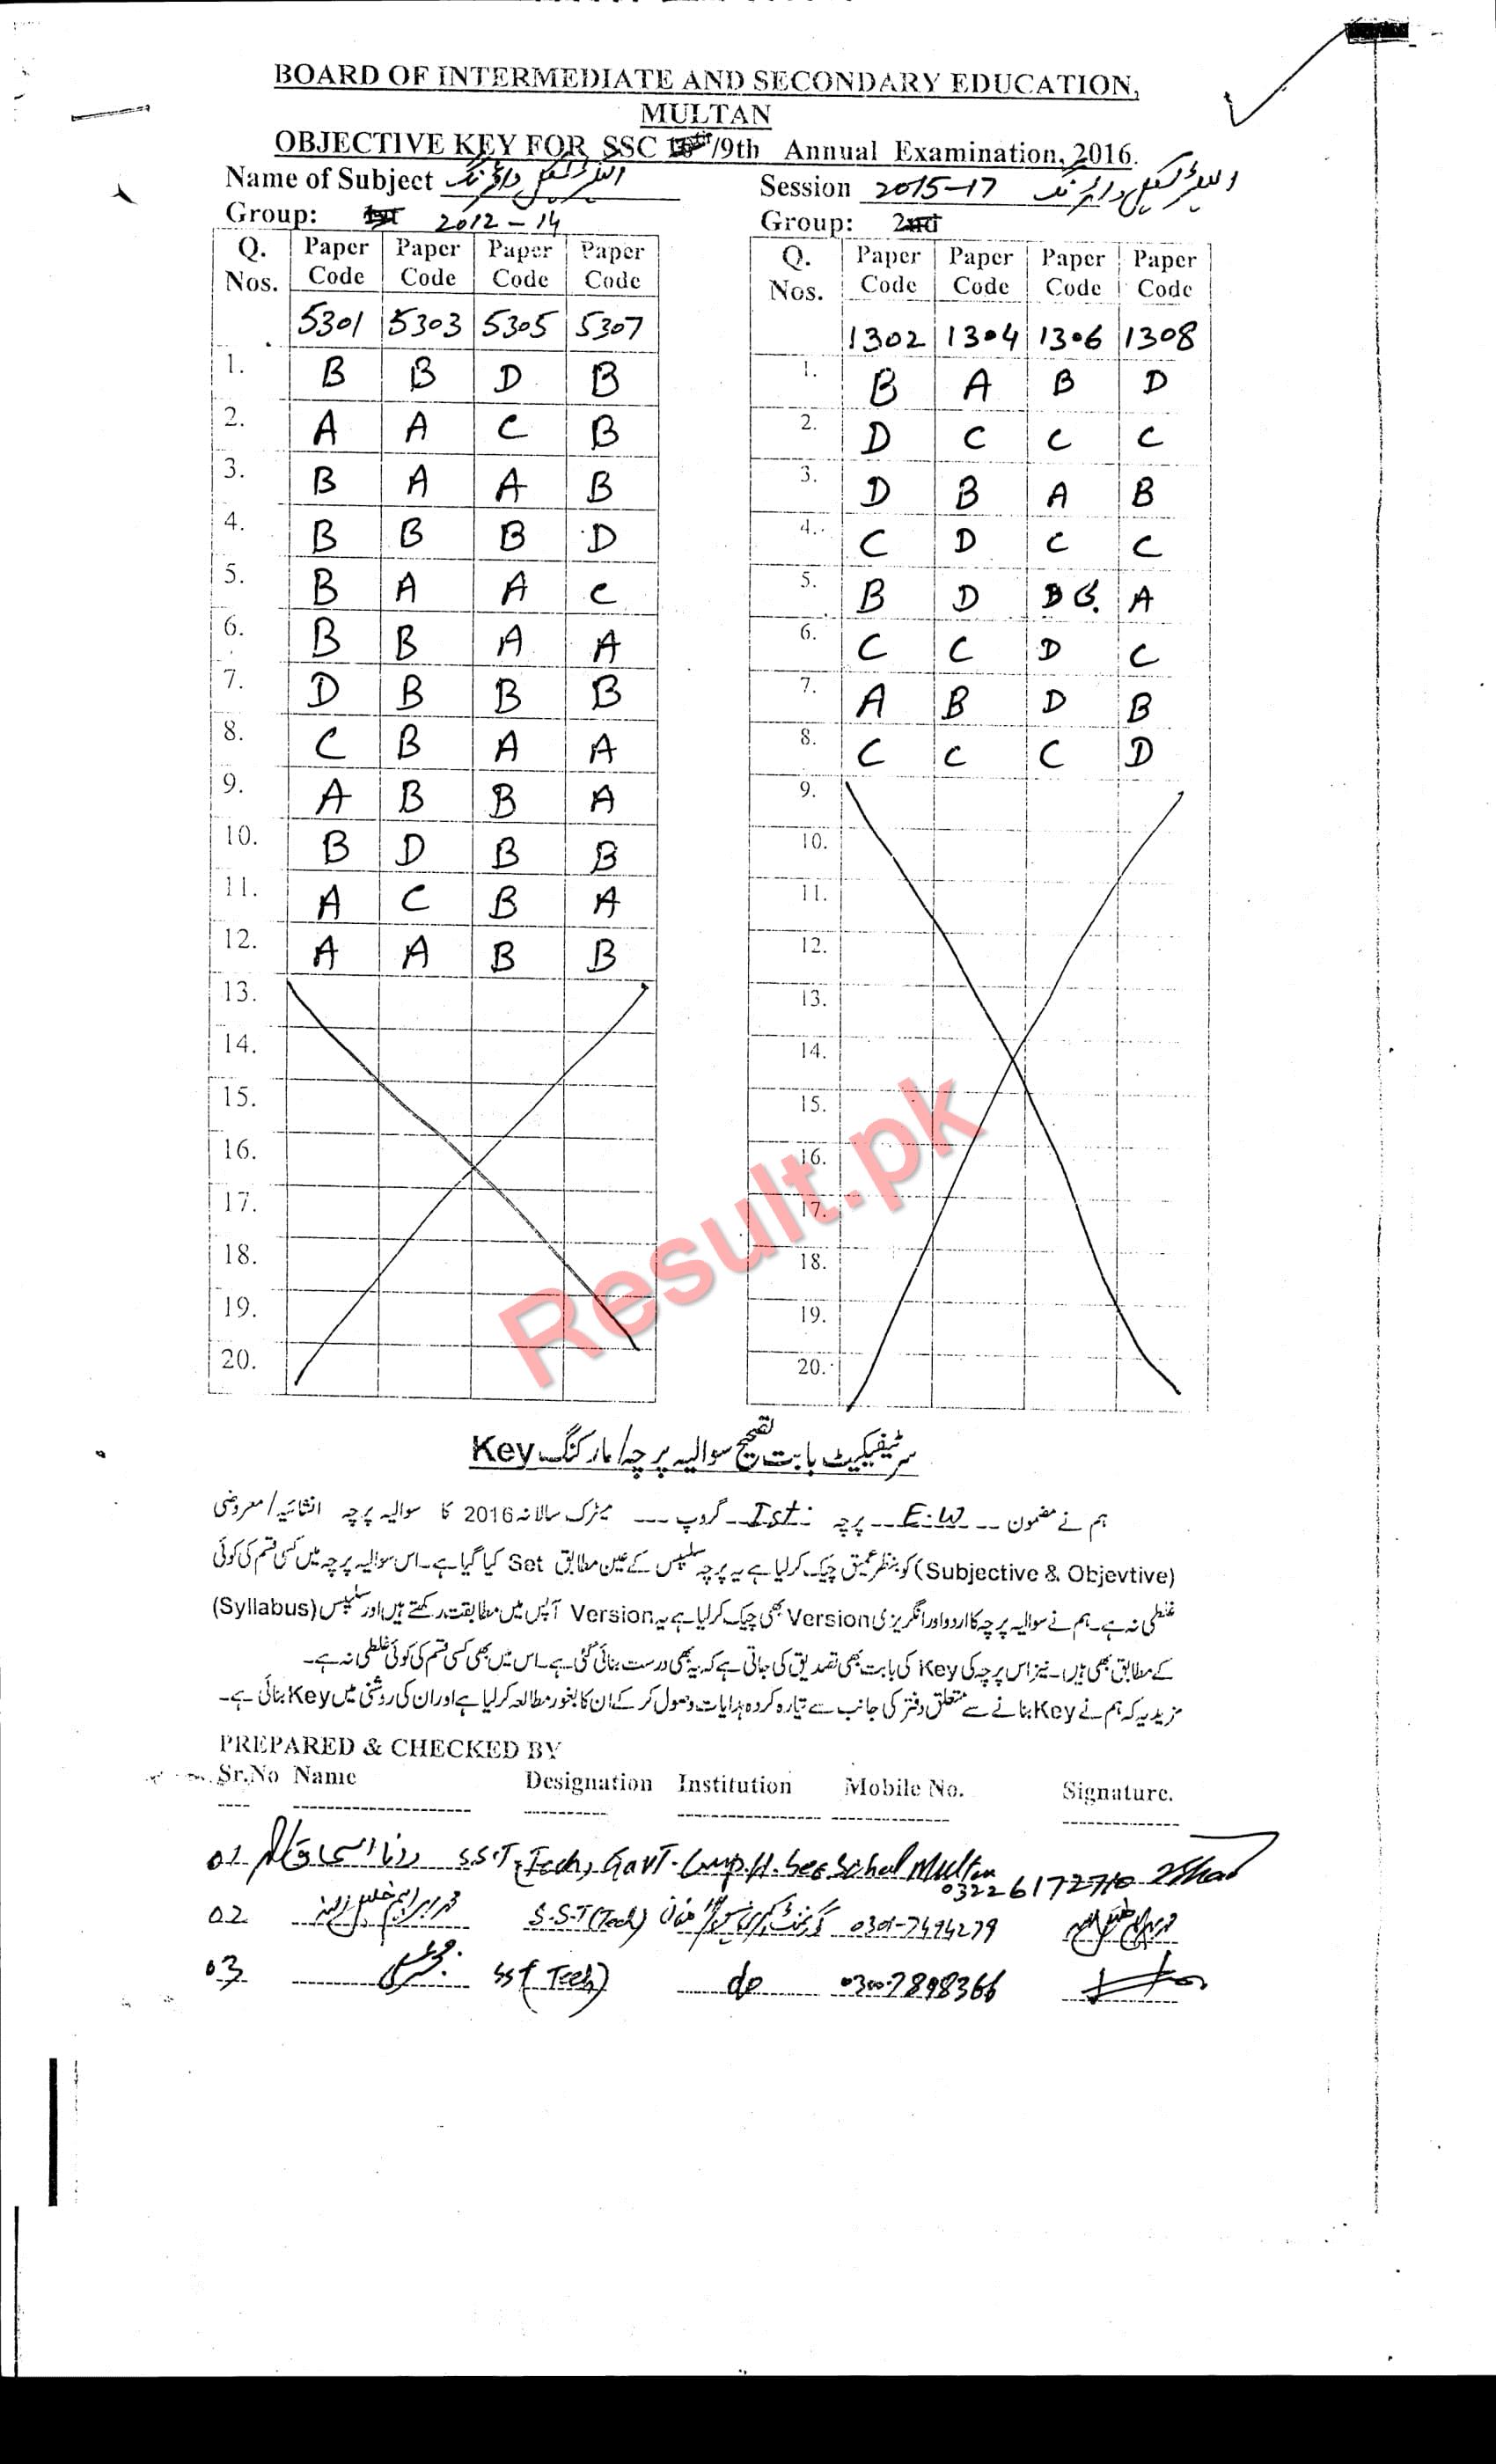 BOARD OF INTERMEDIATE AND SECONDARY EDUCATION,
MULTAN
OBJECTIVE KEY FOR SSC /9th Annual Examination, 2016.
Name of Subject الیکٹریکل وائرنگ
Group: 1st 2012-14
Q. Nos. Paper Code Paper Code Paper Code Paper Code
5301 5303 5305 5307
1. B B D B
2. A A C B
3. B A A B
4. B B B D
5. B A A C
6. B B A A
7. D B B B
8. C B A A
9. A B B A
10. B D B B
11. A C B A
12. A A B B
13.
14.
15.
16.
17.
18.
19.
20.
Session 2015-17 الیکٹریکل وائرنگ
Group: 2nd
Q. Nos. Paper Code Paper Code Paper Code Paper Code
1302 1304 1306 1308
1. B A B D
2. D C C C
3. D B A B
4. C D C C
5. B D B A
6. C C D C
7. A B D B
8. C C C D
9.
10.
11.
12.
13.
14.
15.
16.
17.
18.
19.
20.
Result.pk
سرٹیفیکیٹ بابت تصحیح سوالیہ پرچہ/مارکنگ Key
ہم نے مضمون E.W پرچہ Ist گروپ --- میٹرک سالانہ 2016 کا سوالیہ پرچہ انشائیہ/معروضی
(Subjective & Objevtive) کو بنظر عمیق چیک کرلیا ہے یہ پرچہ سلیبس کے عین مطابق Set کیا گیا ہے۔ اس سوالیہ پرچہ میں کسی قسم کی کوئی
غلطی نہ ہے۔ ہم نے سوالیہ پرچہ کا اردو اور انگریزی Version بھی چیک کرلیا ہے یہ Version آپس میں مطابقت رکھتے ہیں اور سلیبس (Syllabus)
کے مطابق بھی ہیں۔ نیز اس پرچہ کی Key کی بابت بھی تصدیق کی جاتی ہے کہ یہ بھی درست بنائی گئی ہے۔ اس میں بھی کسی قسم کی کوئی غلطی نہ ہے۔
مزید یہ کہ ہم نے Key بنانے سے متعلق دفتر کی جانب سے تیار کردہ ہدایات وصول کر کے ان کا بغور مطالعہ کرلیا ہے اور ان کی روشنی میں Key بنائی ہے۔
PREPARED & CHECKED BY
Sr.No Name Designation Institution Mobile No. Signature.
01 S.S.T (Tech) Govt. Comp. H. Sec School Multan 03226172710
02 S.S.T (Tech) 0301-7494279
03 SST (Tech) do 03007898366